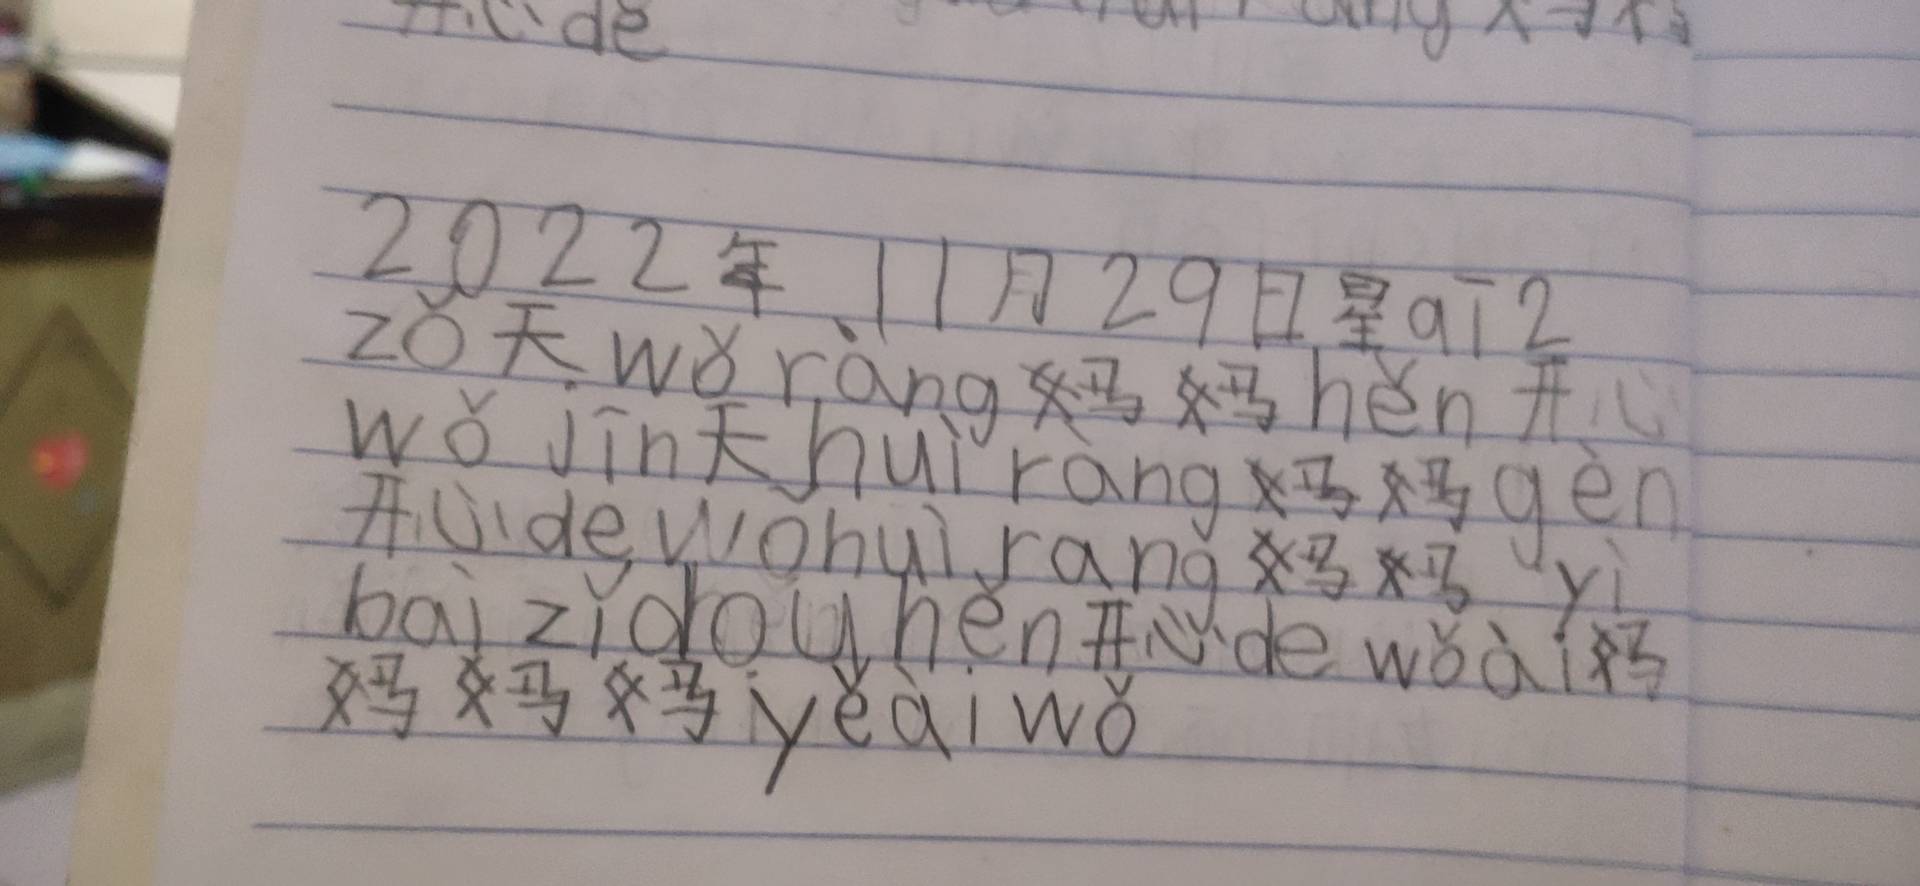 开心de
2022年11月29日星qī2
zǒ天wǒ ràng妈妈hěn开心
wǒ jīn天huì ràng妈妈gèn
开心de wǒ huì ràng妈妈yì
bài zǐ doy hěn开心de wǒ ài妈
妈妈妈yě ài wǒ